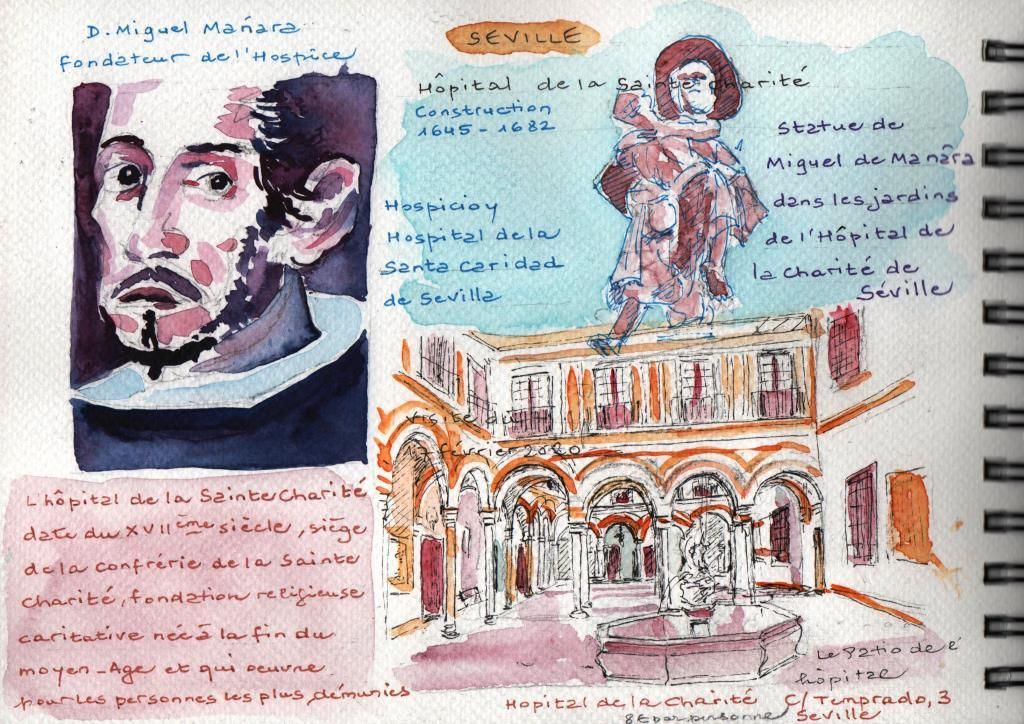 D. Miguel Mañara
fondateur de l'Hospice
SEVILLE
Hôpital de la Sainte Charité
Construction
1645 - 1682
Statue de
Miguel de Manâra
dans les jardins
de l'Hôpital de
la Charité de
Séville
Hospicio y
Hospital de la
Santa Caridad
de Sevilla
visite du
février 2020
L'hôpital de la Sainte Charité
date du XVIIème siècle, siège
de la confrérie de la Sainte
Charité, fondation religieuse
caritative née à la fin du
moyen-Age et qui oeuvre
pour les personnes les plus démunies
Le Patio de l'
hôpital
Hopital de la Charité C/ Temprado, 3
8€ par personne Séville